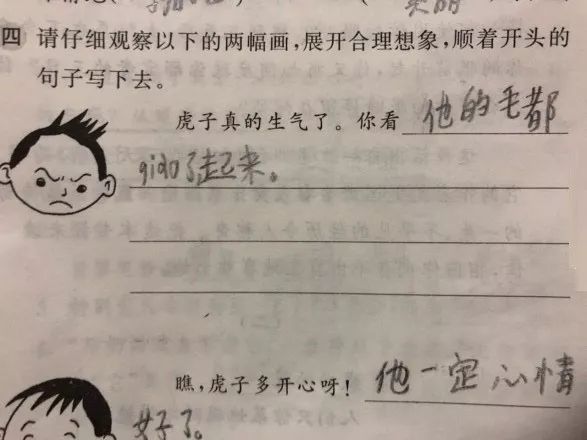 四 请仔细观察以下的两幅画,展开合理想象,顺着开头的
句子写下去。
虎子真的生气了。你看 他的毛都
qiào了起来。
瞧,虎子多开心呀! 他一定心情
好了。